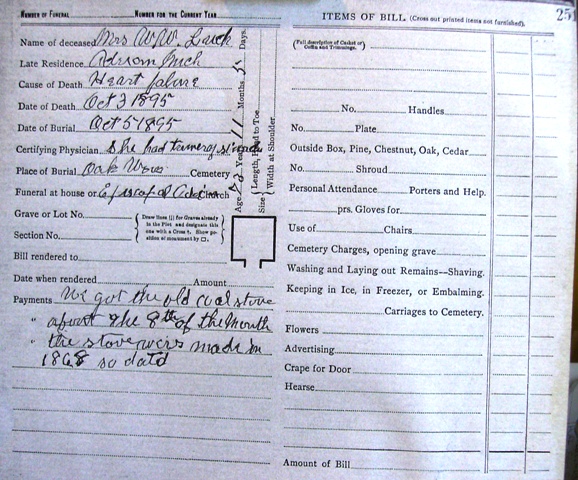 NUMBER OF FUNERAL NUMBER FOR THE CURRENT YEAR
Name of deceased Mrs W.W. Luck
Late Residence Adrian Mich
Cause of Death Heart falure
Date of Death Oct 3 1895
Date of Burial Oct 5 1895
Certifying Physician She had
Place of Burial Oak Wood Cemetery
Funeral at house or Episcopal Church
Age Years 11 Months 5 Days
Size Length, Head to Toe
Width at Shoulder
Grave or Lot No.
Section No.
Draw lines ||| for Graves already in the Plot and designate this one with a Cross †. Show position of monument by □.
Bill rendered to
Date when rendered Amount
Payments We got the old coal stove
" about the 8th of the Month
" the stove was made in
1868 so datd
ITEMS OF BILL. (Cross out printed items not furnished). 25
(Full description of Casket or Coffin and Trimmings.)
No. Handles
No. Plate
Outside Box, Pine, Chestnut, Oak, Cedar
No. Shroud
Personal Attendance Porters and Help.
prs. Gloves for
Use of Chairs.
Cemetery Charges, opening grave
Washing and Laying out Remains—Shaving.
Keeping in Ice, in Freezer, or Embalming.
Carriages to Cemetery.
Flowers
Advertising.
Crape for Door
Hearse
Amount of Bill